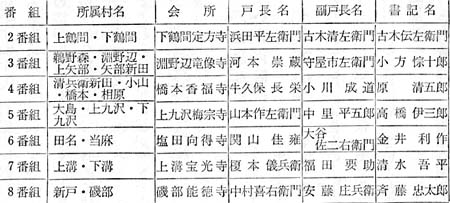 番組 所属村名 会所 戸長名 副戸長名 書記名
2番組 上鶴間・下鶴間 下鶴間定方寺 浜田平左衛門 古木清左衛門 古木伝左衛門
3番組 鵜野森・淵野辺・上矢部・矢部新田 淵野辺竜像寺 河本崇蔵 守屋市左衛門 小方惊十郎
4番組 清兵衛新田・小山・橋本・相原 橋本香福寺 牛久保長栄 小川成道 原清五郎
5番組 大島・上九沢・下九沢 上九沢梅宗寺 山本作左衛門 中里平五郎 高橋伊三郎
6番組 田名・当麻 塩田向得寺 関山佳雍 大谷佐二右衛門 金井利作
7番組 上溝・下溝 上溝宝光寺 榎本儀兵衛 福田要助 清水吾平
8番組 新戸・磯部 磯部能徳寺 中村喜右衛門 安藤庄兵衛 斉藤忠太郎